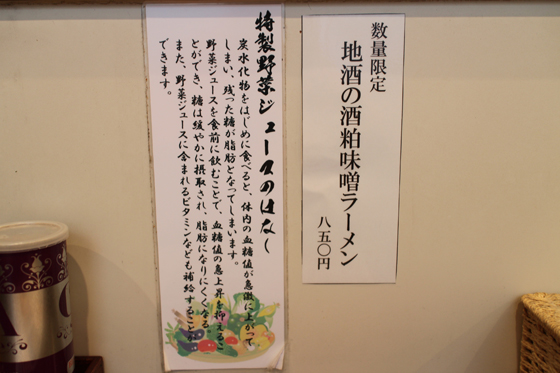 数量限定
地酒の酒粕味噌ラーメン
八五〇円
特製野菜ジュースのはなし
炭水化物をはじめに食べると、体内の血糖値が急激に上がって
しまい、残った糖が脂肪となってしまいます。
野菜ジュースを食前に飲むことで、血糖値の急上昇を抑えるこ
とができ、糖は緩やかに摂取され、脂肪になりにくくなる。
また、野菜ジュースに含まれるビタミンなども補給することが
できます。